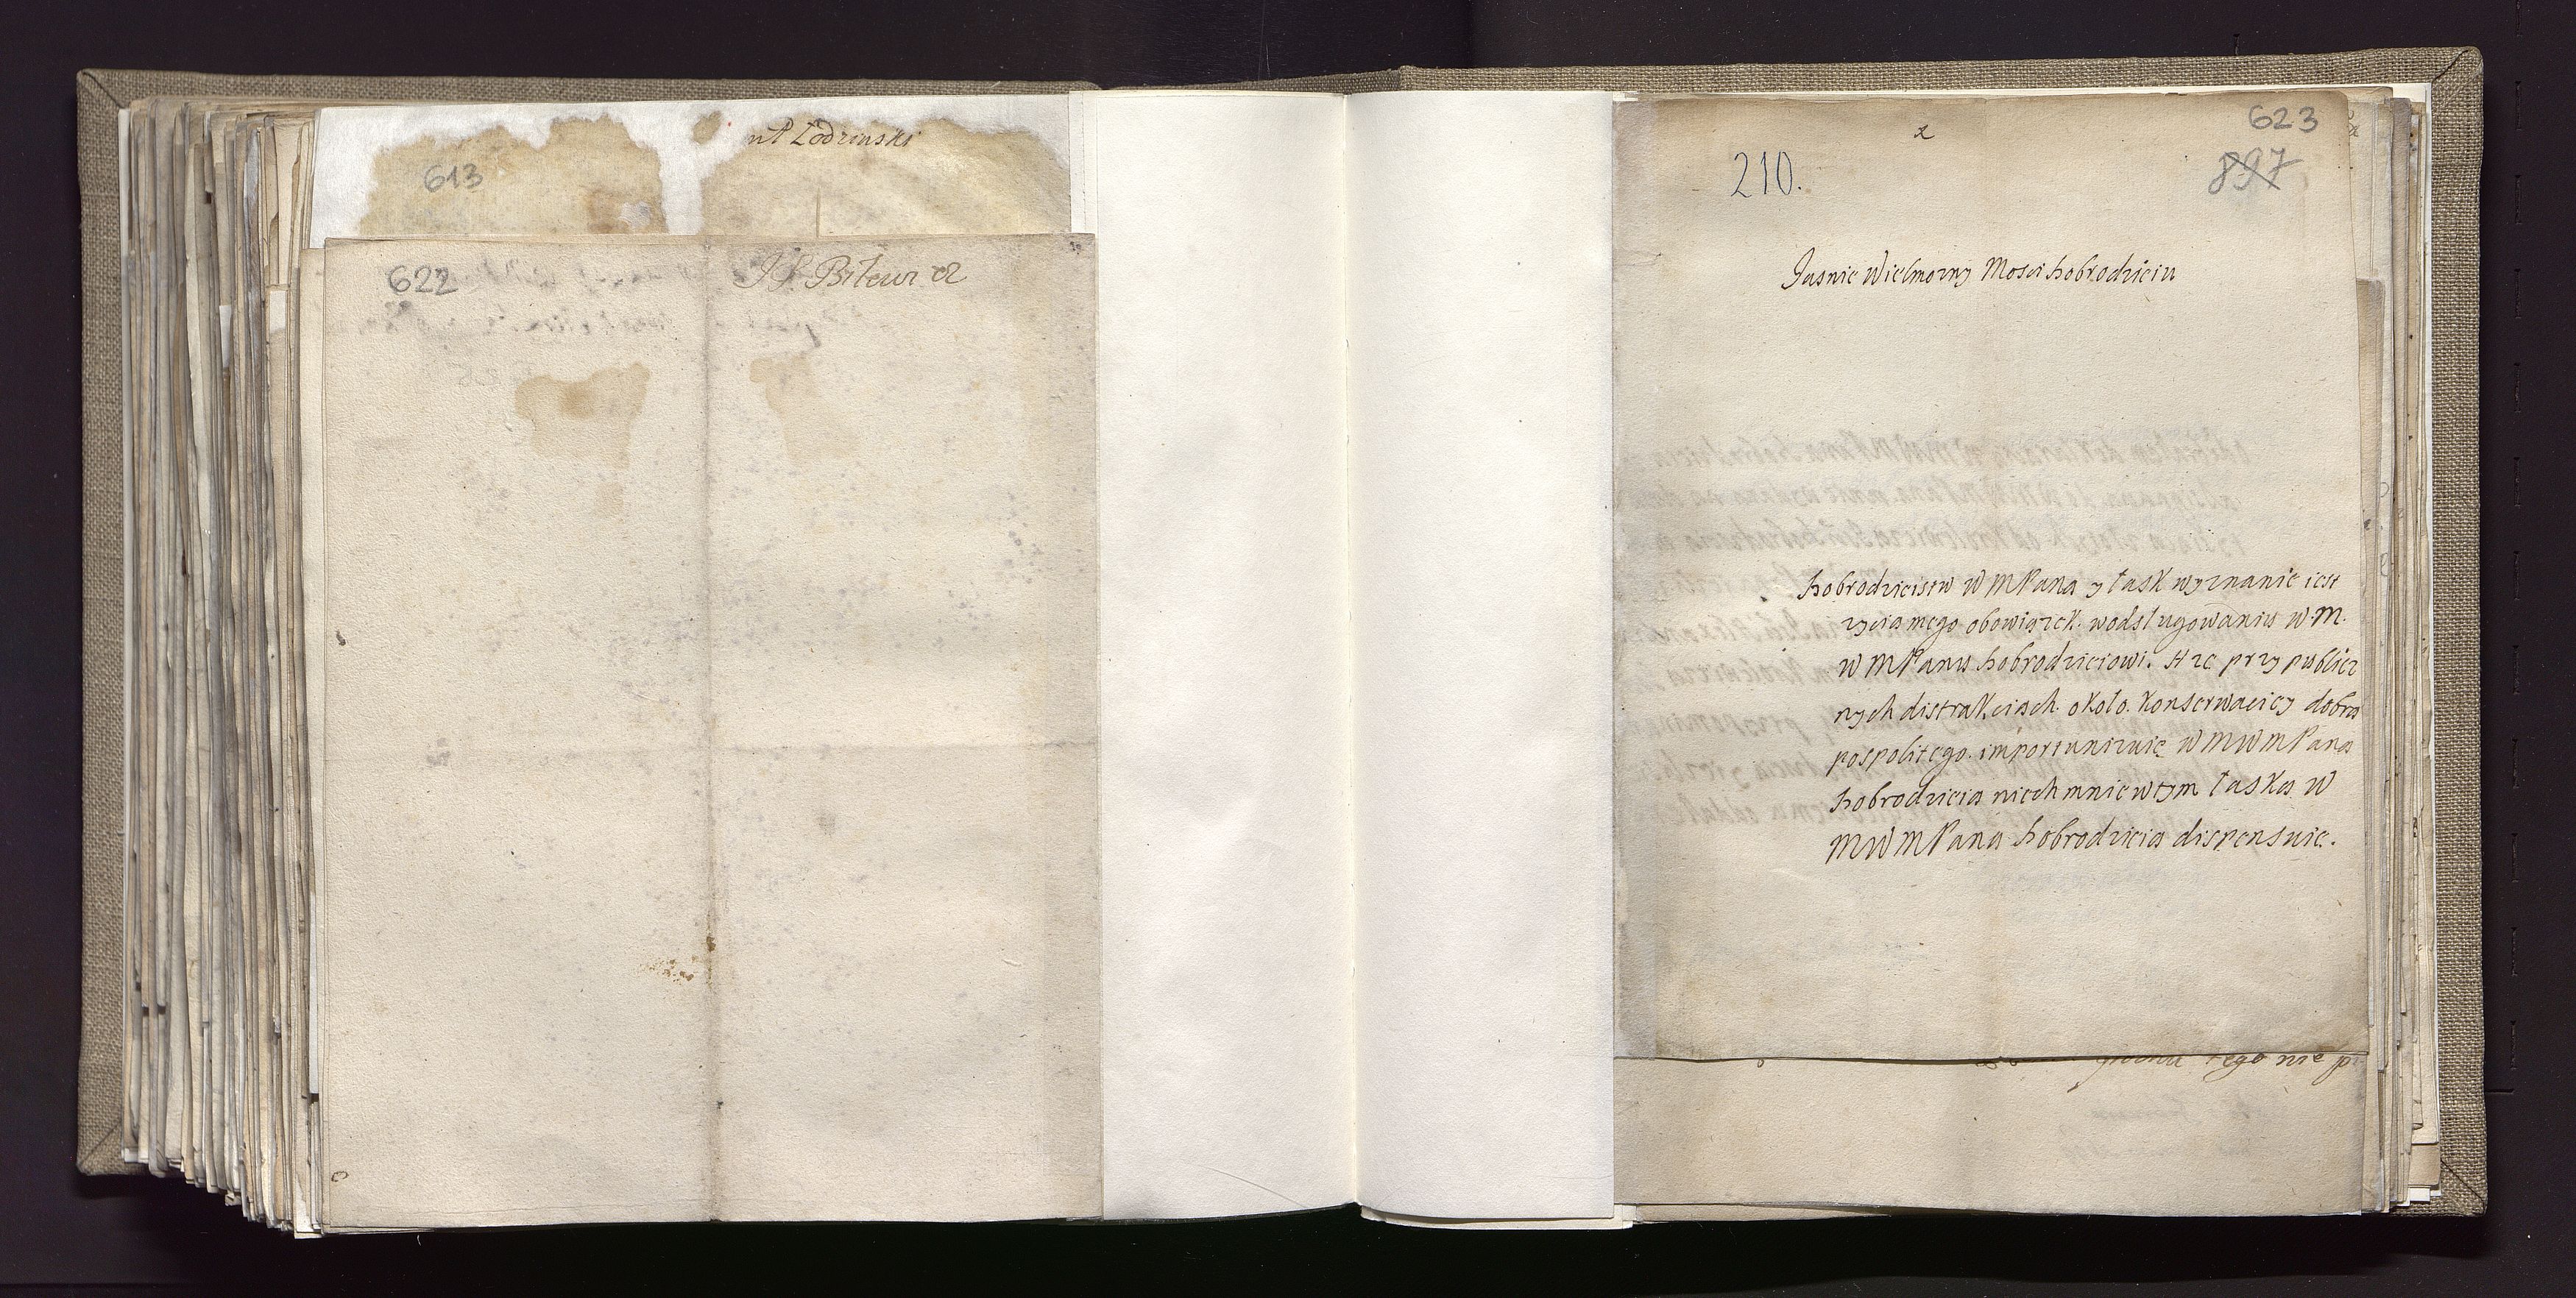 613
nt Zodzinski
622
J S. Bilewicz
2
623
210.
897
Jasnie Wielmozny Mosci Dobrodzieiu
Dobrodzieistw W M Pana y łask wyznanie iest
zycia mego obowiązek. w odsługowaniu W. M.
W M Panu Dobrodzieiowi. A ze przy publicz
nych distrakciach około konserwaciey dobra
pospolitego importunizuię W M W M Pana
Dobrodzieia niech mnie w tym łaska W
M W M Pana Dobrodzieia dispensuie.
tego nie p